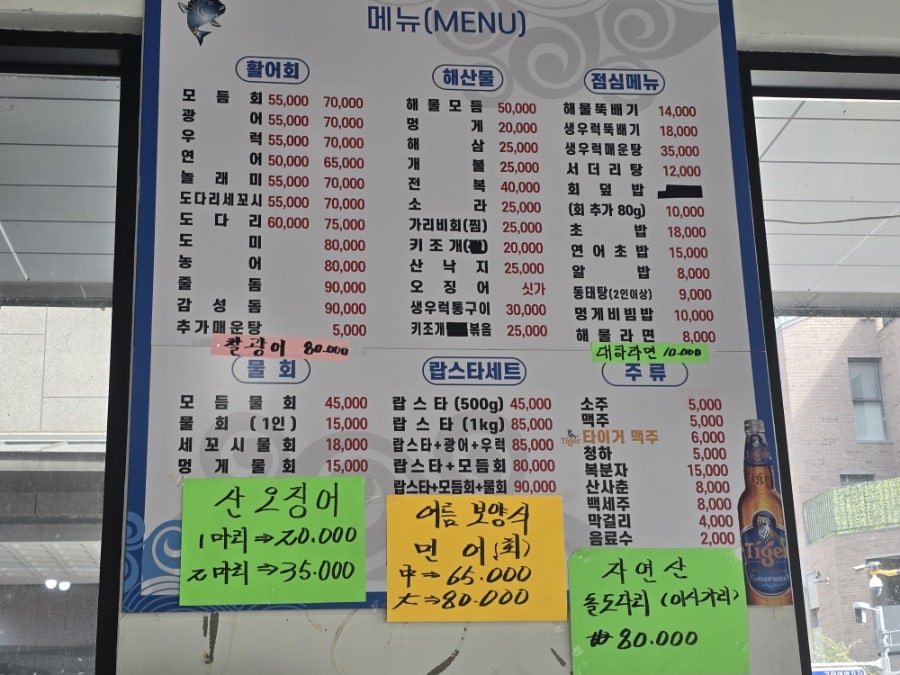 메뉴(MENU)
활어회
모듬회 55,000 70,000
광어 55,000 70,000
우럭 55,000 70,000
연어 50,000 65,000
놀래미 55,000 70,000
도다리세꼬시 55,000 70,000
도다리 60,000 75,000
도미 80,000
농어 80,000
줄돔 90,000
감성돔 90,000
추가매운탕 5,000
찰광어 80.000
해산물
해물모듬 50,000
멍게 20,000
해삼 25,000
개불 25,000
전복 40,000
소라 25,000
가리비회(찜) 25,000
키조개( ) 20,000
산낙지 25,000
오징어 싯가
생우럭통구이 30,000
키조개 볶음 25,000
점심메뉴
해물뚝배기 14,000
생우럭뚝배기 18,000
생우럭매운탕 35,000
서더리탕 12,000
회덮밥
(회 추가 80g) 10,000
초밥 18,000
연어초밥 15,000
알밥 8,000
동태탕(2인이상) 9,000
멍게비빔밥 10,000
해물라면 8,000
대하라면 10.000
물회
모듬물회 45,000
물회(1인) 15,000
세꼬시물회 18,000
멍게물회 15,000
랍스타세트
랍스타(500g) 45,000
랍스타(1kg) 85,000
랍스타+광어+우럭 85,000
랍스타+모듬회 80,000
랍스타+모듬회+물회 90,000
주류
소주 5,000
맥주 5,000
Tiger 타이거 맥주 6,000
청하 5,000
복분자 15,000
산사춘 8,000
백세주 8,000
막걸리 4,000
음료수 2,000
Tiger
LAGER BEER
산오징어
1마리⇒20.000
2마리⇒35.000
여름 보양식
민어(회)
中⇒65.000
大⇒80.000
자연산
돌도다리(이시가리)
₩80.000